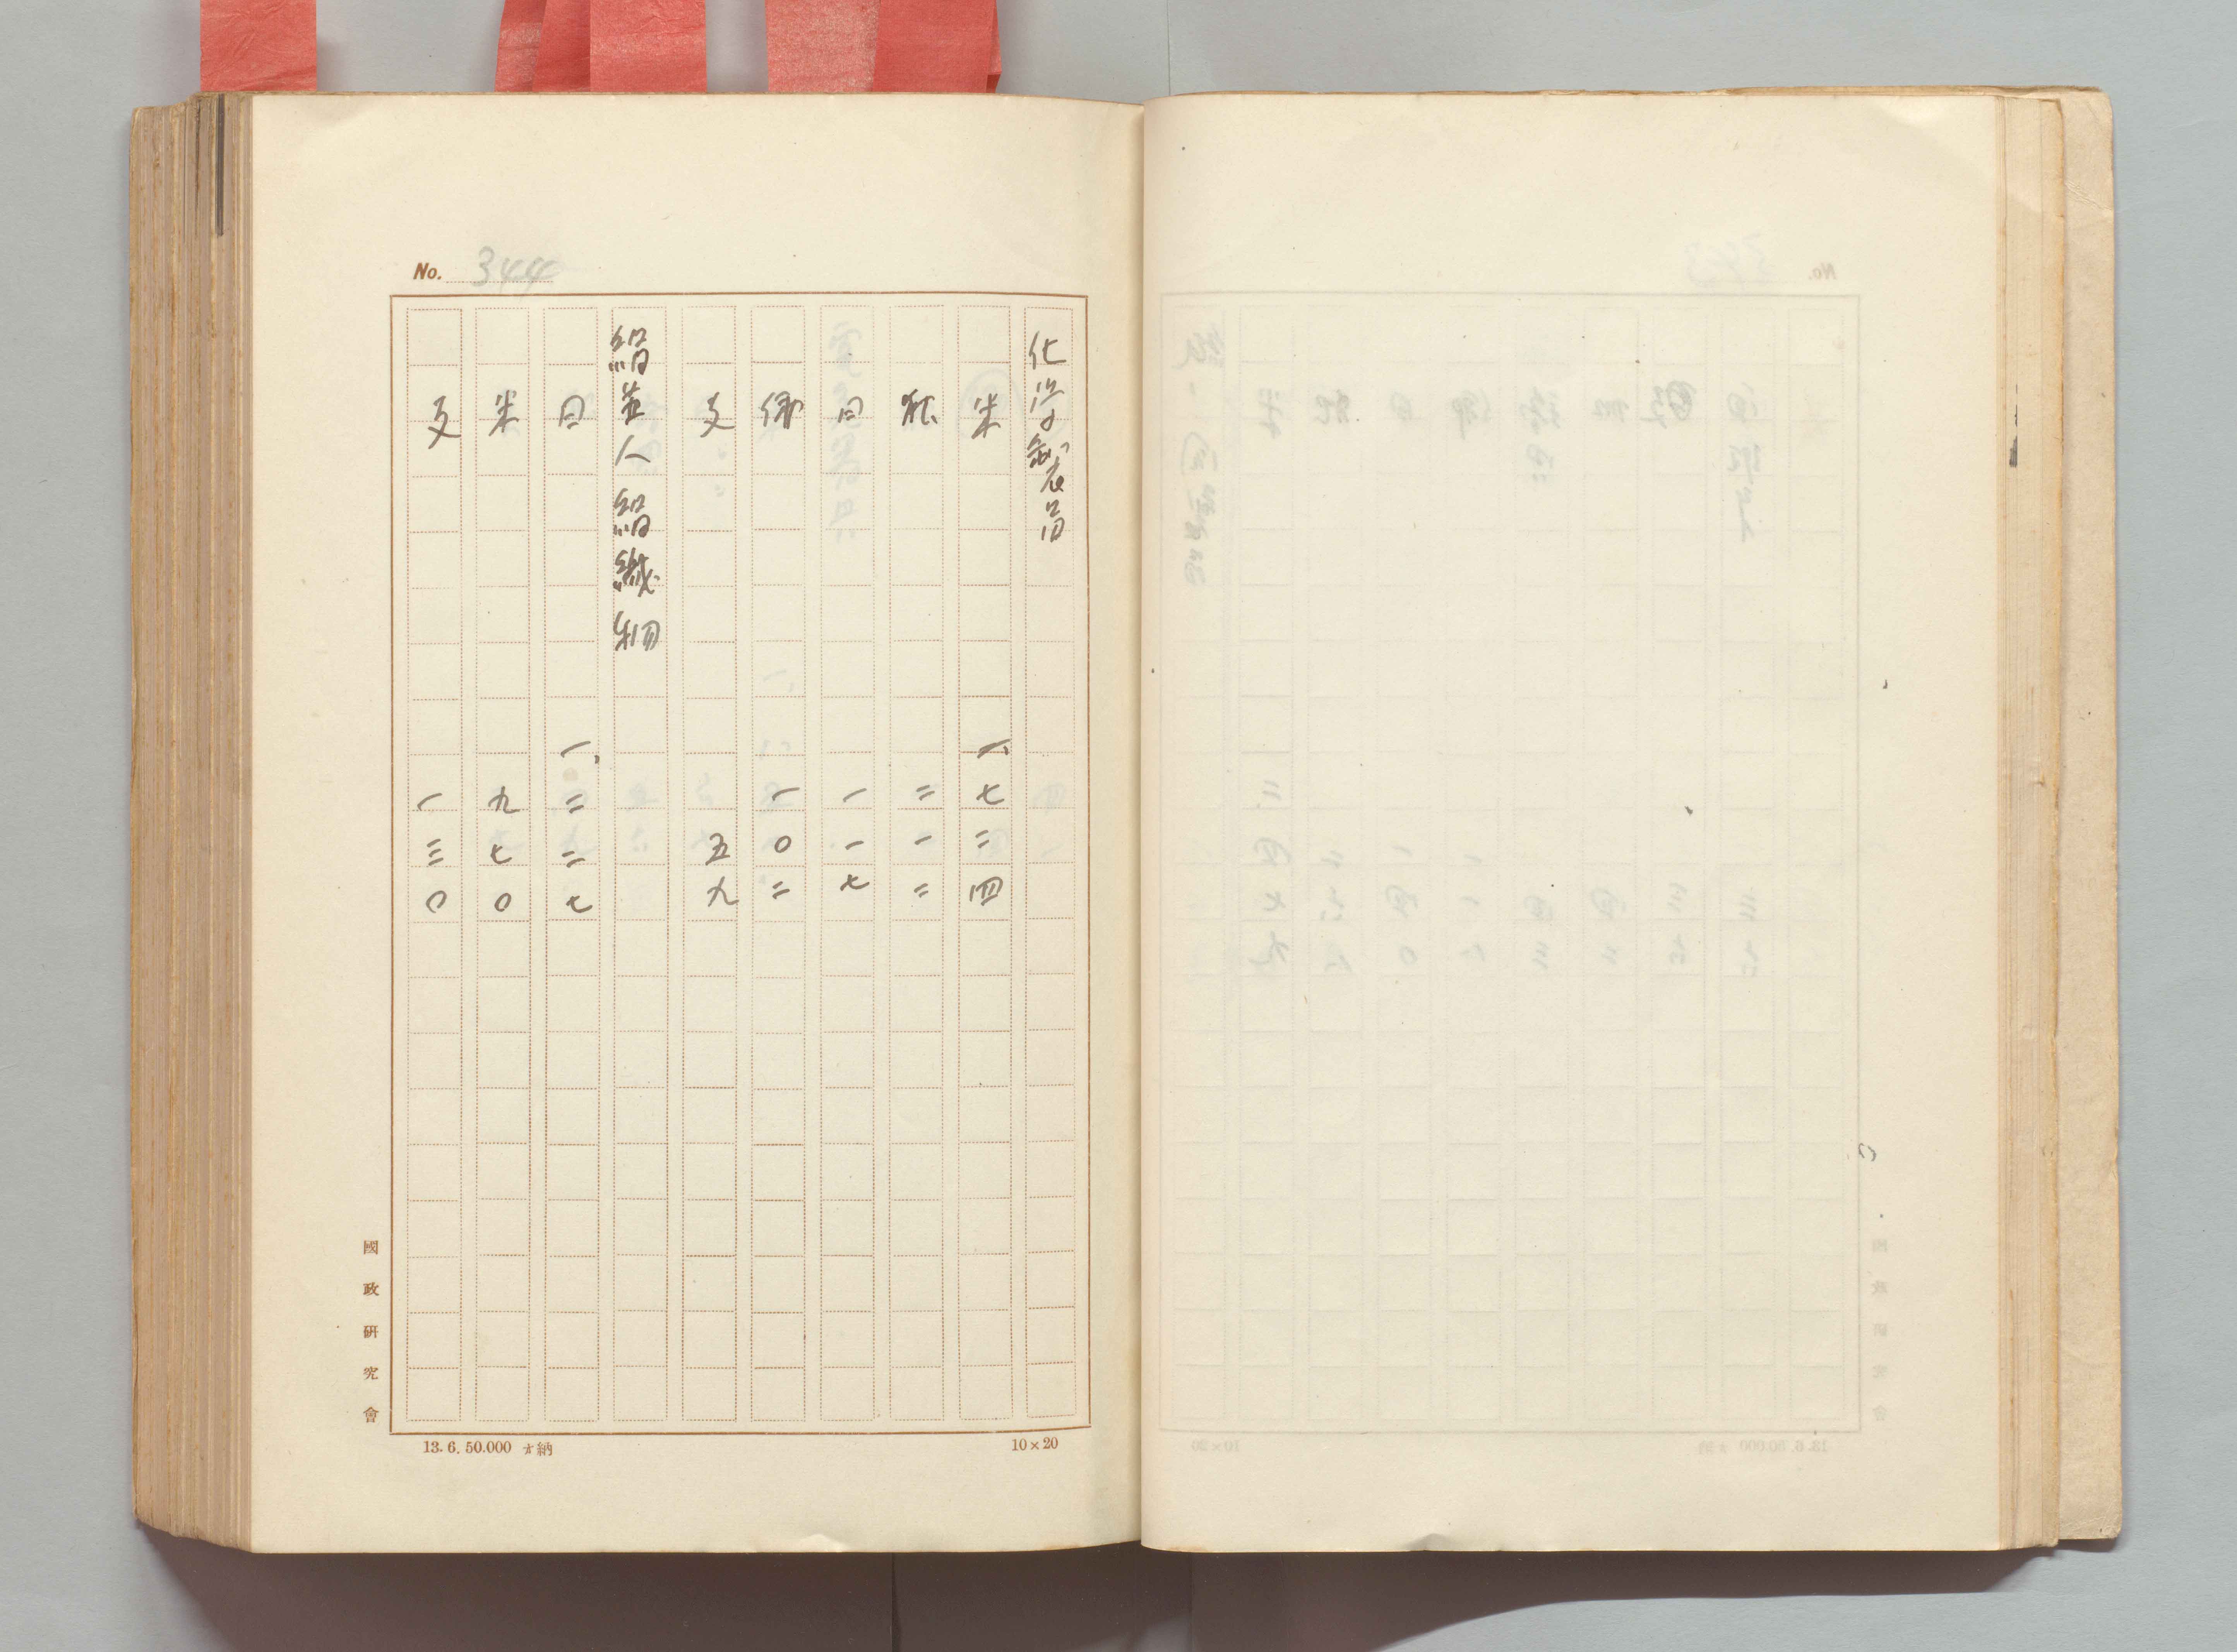 No. 344
化学製品
米 一、七二四
独 二一二
日 一一七
佛 一〇二
支 五九
絹並人絹織物
日 一、二二七
米 九七〇
支 一三〇
國政研究會
13.6.50.000 納
10×20